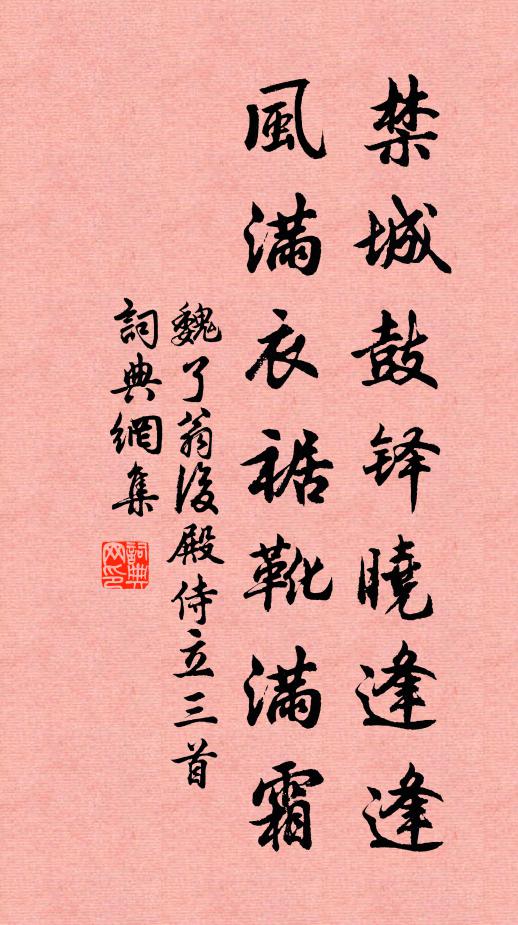 禁城鼓铎曉逢逢
風滿衣裾靴滿霜
魏了翁後殿侍立三首
詞典網集
詞典網印